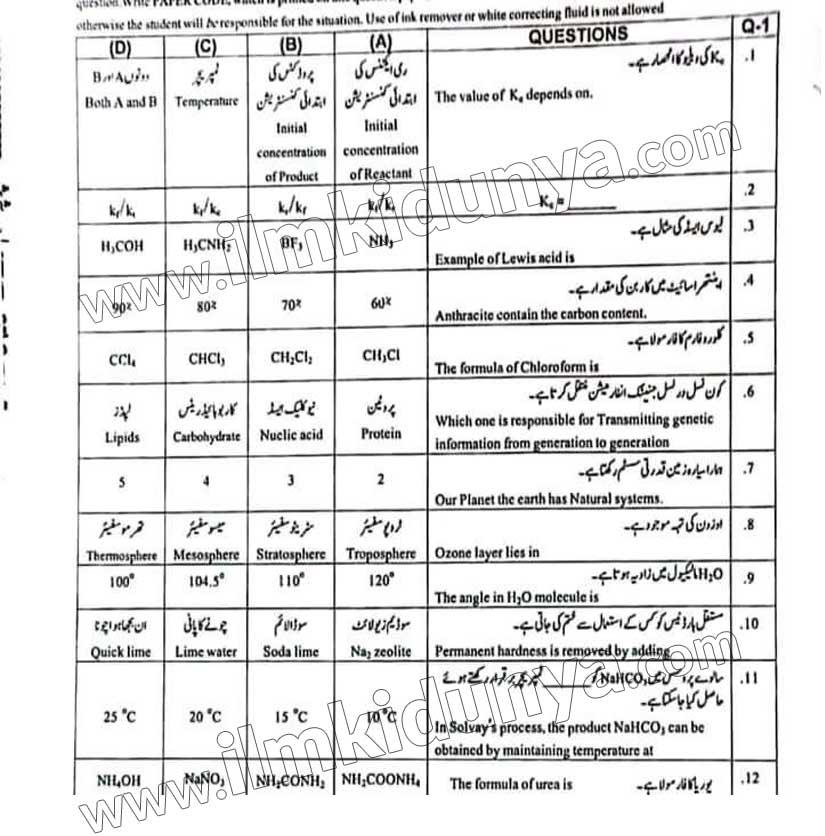 otherwise the student will be responsible for the situation. Use of ink remover or white correcting fluid is not allowed
(D) (C) (B) (A) QUESTIONS Q-1
دونوں A اور B ٹمپریچر پروڈکٹس کی ری ایکٹنٹس کی Kc کی ویلیو کا انحصار ہے۔ .1
ابتدائی کنسنٹریشن ابتدائی کنسنٹریشن
Both A and B Temperature Initial Initial The value of Kc depends on.
concentration concentration
of Product of Reactant
kr/kc kf/kc kr/kf kf/kr Kc = ______ .2
H₃COH H₃CNH₂ BF₃ NH₃ لیوس ایسڈ کی مثال ہے۔ .3
Example of Lewis acid is
90% 80% 70% 60% اینتھراسائیٹ میں کاربن کی مقدار ہے۔ .4
Anthracite contain the carbon content.
CCl₄ CHCl₃ CH₂Cl₂ CH₃Cl کلوروفارم کا فارمولا ہے۔ .5
The formula of Chloroform is
لپڈز کاربوہائیڈریٹس نیوکلیک ایسڈ پروٹین کون نسل در نسل جنیٹک انفارمیشن منتقل کرتا ہے۔ .6
Lipids Carbohydrate Nuclic acid Protein Which one is responsible for Transmitting genetic
information from generation to generation
5 4 3 2 ہمارا سیارہ زمین قدرتی سسٹم رکھتا ہے۔ .7
Our Planet the earth has Natural systems.
تھرموسفیئر میسوسفیئر سٹریٹوسفیئر ٹروپوسفیئر اوزون کی تہہ موجود ہے۔ .8
Thermosphere Mesosphere Stratosphere Troposphere Ozone layer lies in
100° 104.5° 110° 120° H₂O مالیکیول میں زاویہ ہوتا ہے۔ .9
The angle in H₂O molecule is
ان بجھا ہوا چونا چونے کا پانی سوڈا لائم سوڈیم زیولائٹ مستقل ہارڈنیس کو کس کے استعمال سے ختم کی جاتی ہے۔ .10
Quick lime Lime water Soda lime Na₂ zeolite Permanent hardness is removed by adding
سالوے پروسس میں NaHCO₃ کو ______ ٹمپریچر برقرار رکھتے ہوئے .11
حاصل کیا جا سکتا ہے۔
25 °C 20 °C 15 °C 10 °C In Solvay's process, the product NaHCO₃ can be
obtained by maintaining temperature at
NH₄OH NaNO₃ NH₂CONH₂ NH₂COONH₄ The formula of urea is یوریا کا فارمولا ہے۔ .12
www.ilmkidunya.com
www.ilmkidunya.com